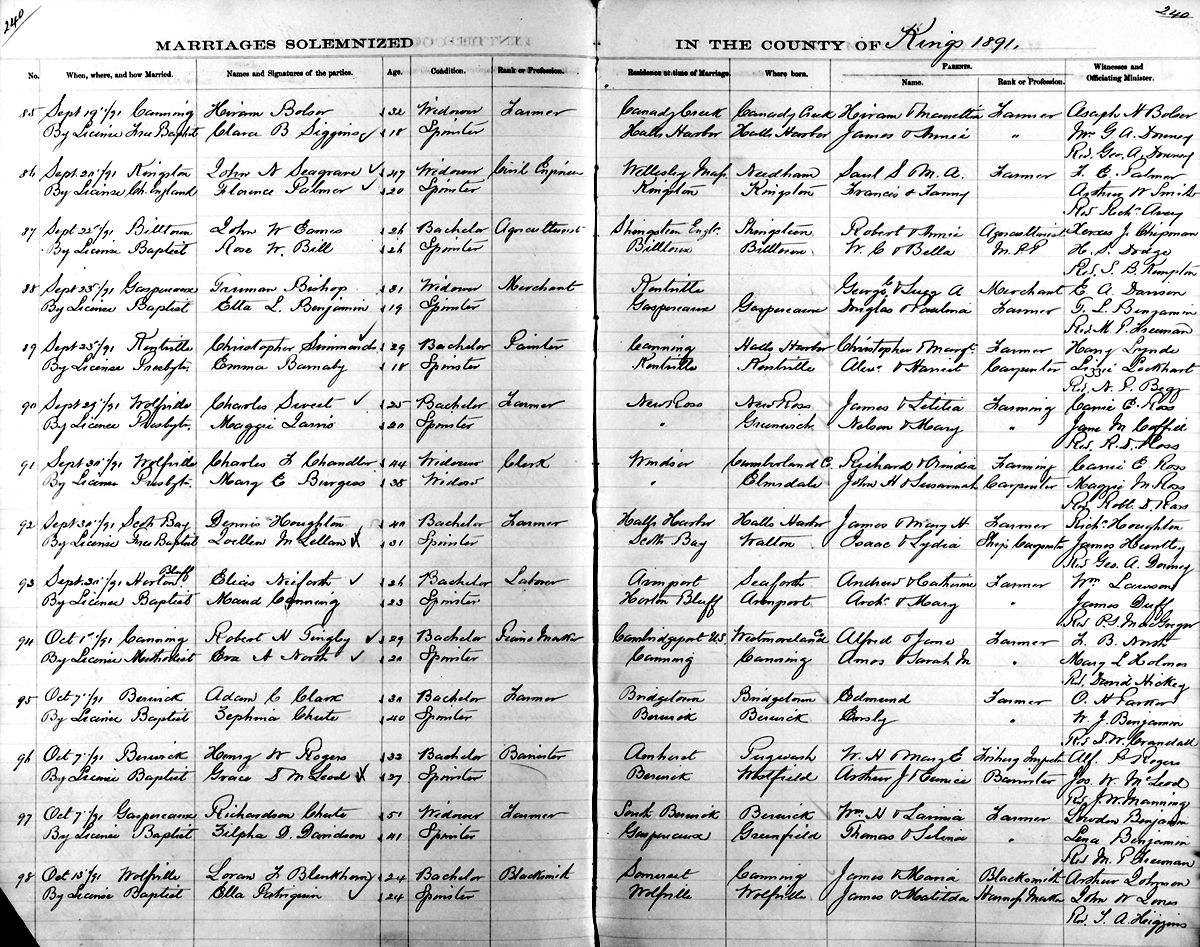 240
240
MARRIAGES SOLEMNIZED IN THE COUNTY OF Kings 1891.
No. When, where, and how Married. Names and Signatures of the parties. Age. Condition. Rank or Profession. Residence at time of Marriage. Where born. PARENTS. Name. Rank or Profession. Witnesses and Officiating Minister.
85 Sept 19th/91 Canning Hiram Bolser 32 Widower Farmer Canady Creek Canady Creek Hiram & Farmer Asaph N Bolser
By License Free Baptist Clara B Siggins 18 Spinster Halls Harbor Halls Harbor James & Annie " Mrs G A Downey
Rev. Geo. A. Downey
86 Sept. 20th/91 Kingston John N Seagrave 47 Widower Civil Engineer Wellesley Mass Needham Saul S M. A. Farmer F. E. Palmer
By License Ch. England Florence Palmer 20 Spinster Kingston Kingston Francis & Fanny Arthur W Smith
Rev Richd Avery
87 Sept 22nd/91 Billtown John W Eames 26 Bachelor Agriculturist Engt. Robert & Annie Agriculturist J. Chipman
By License Baptist Rose W. Bill 26 Spinster Billtown Billtown W. C & Bella M.P.P H. S. Dodge
Rev. S. B. Kempton
88 Sept 23rd/91 Gaspereaux Truman Bishop 31 Widower Merchant Kentville George & A Merchant E. A. Davison
By License Baptist Etta L. Benjamin 19 Spinster Gaspereaux Gaspereaux Douglas & Paulina Farmer F. L. Benjamin
Rev. M. P. Freeman
89 Sept 23rd/91 Kentville Christopher Simmonds 29 Bachelor Painter Canning Halls Harbor Christopher & Margt. Farmer Harry Lynde
By License Presbytn. Emma Barnaby 18 Spinster Kentville Kentville Alexr & Harriet Carpenter Lizzie Lockhart
Rev. N. P. Begg
90 Sept 29th/91 Wolfville Charles Sweet 25 Bachelor Farmer New Ross New Ross James & Letitia Farming Carrie E. Ross
By License Presbytn. Maggie Jarvis 20 Spinster " Greenwich Nelson & Mary " Jane M
Rev. R. D. Ross
91 Sept 30th/91 Wolfville Charles F Chandler 44 Widower Clerk Windsor Cumberland C. Richard & Farming Carrie E Ross
By License Presbytn. Mary E Burgess 35 Widow " Elmsdale John H & Susannah Carpenter Maggie M Ross
Rev Robt. D. Ross
92 Sept 30th/91 Scott Bay Dennis Houghton 40 Bachelor Farmer Halls Harbor Halls Harbor James & Mary H Farmer Richd Houghton
By License Free Baptist Loellen McLellan 31 Spinster Scott Bay Walton Isaac & Lydia Ship Carpenter James Huntley
Rev Geo. A. Downey
93 Sept. 30th/91 Horton Bluff Elias Neiforth 26 Bachelor Laborer Avonport Seaforth Andrew & Catherine Farmer Wm Lawson
By License Baptist Maud Canning 23 Spinster Horton Bluff Avonport Archd & Mary " James Duff
Rev P.S. MacGregor
94 Oct 1st/91 Canning Robert H Tingley 29 Bachelor Piano Maker Cambridgeport U.S Westmoreland Co Alfred & Jane Farmer F. B. North
By License Methodist Eva A North 20 Spinster Canning Canning Amos & Sarah M " Mary L Holmes
Rev David Hickey
95 Oct 7th/91 Berwick Adam C Clark 30 Bachelor Farmer Bridgetown Bridgetown Edmund Farmer O. H Parker
By License Baptist Zephina Chute 40 Spinster Berwick Berwick " W. J. Benjamin
Rev D. W. Crandall
96 Oct 7th/91 Berwick Henry W Rogers 33 Bachelor Barrister Amherst Pugwash W. H & Mary E Fishery Inspectr Alf. P Rogers
By License Baptist Grace D McLeod 27 Spinster Berwick Westfield Arthur J & Eunice Barrister Jos. W. McLeod
Rev J. W. Manning
97 Oct 7th/91 Gaspereaux Richardson Chute 51 Widower Farmer South Berwick Berwick Wm H & Farmer Benjamin
By License Baptist Zilpha D. Davidson 41 Spinster Gaspereaux Greenfield Thomas & Selina " Lena Benjamin
Rev M. P. Freeman
98 Oct 15th/91 Wolfville Loran F Blenkhorn 24 Bachelor Blacksmith Somerset Canning James & Maria Blacksmith Arthur Johnson
By License Baptist Ella Patriquin 24 Spinster Wolfville Wolfville James & Matilda Harness Maker John W Jones
Rev. T. A. Higgins